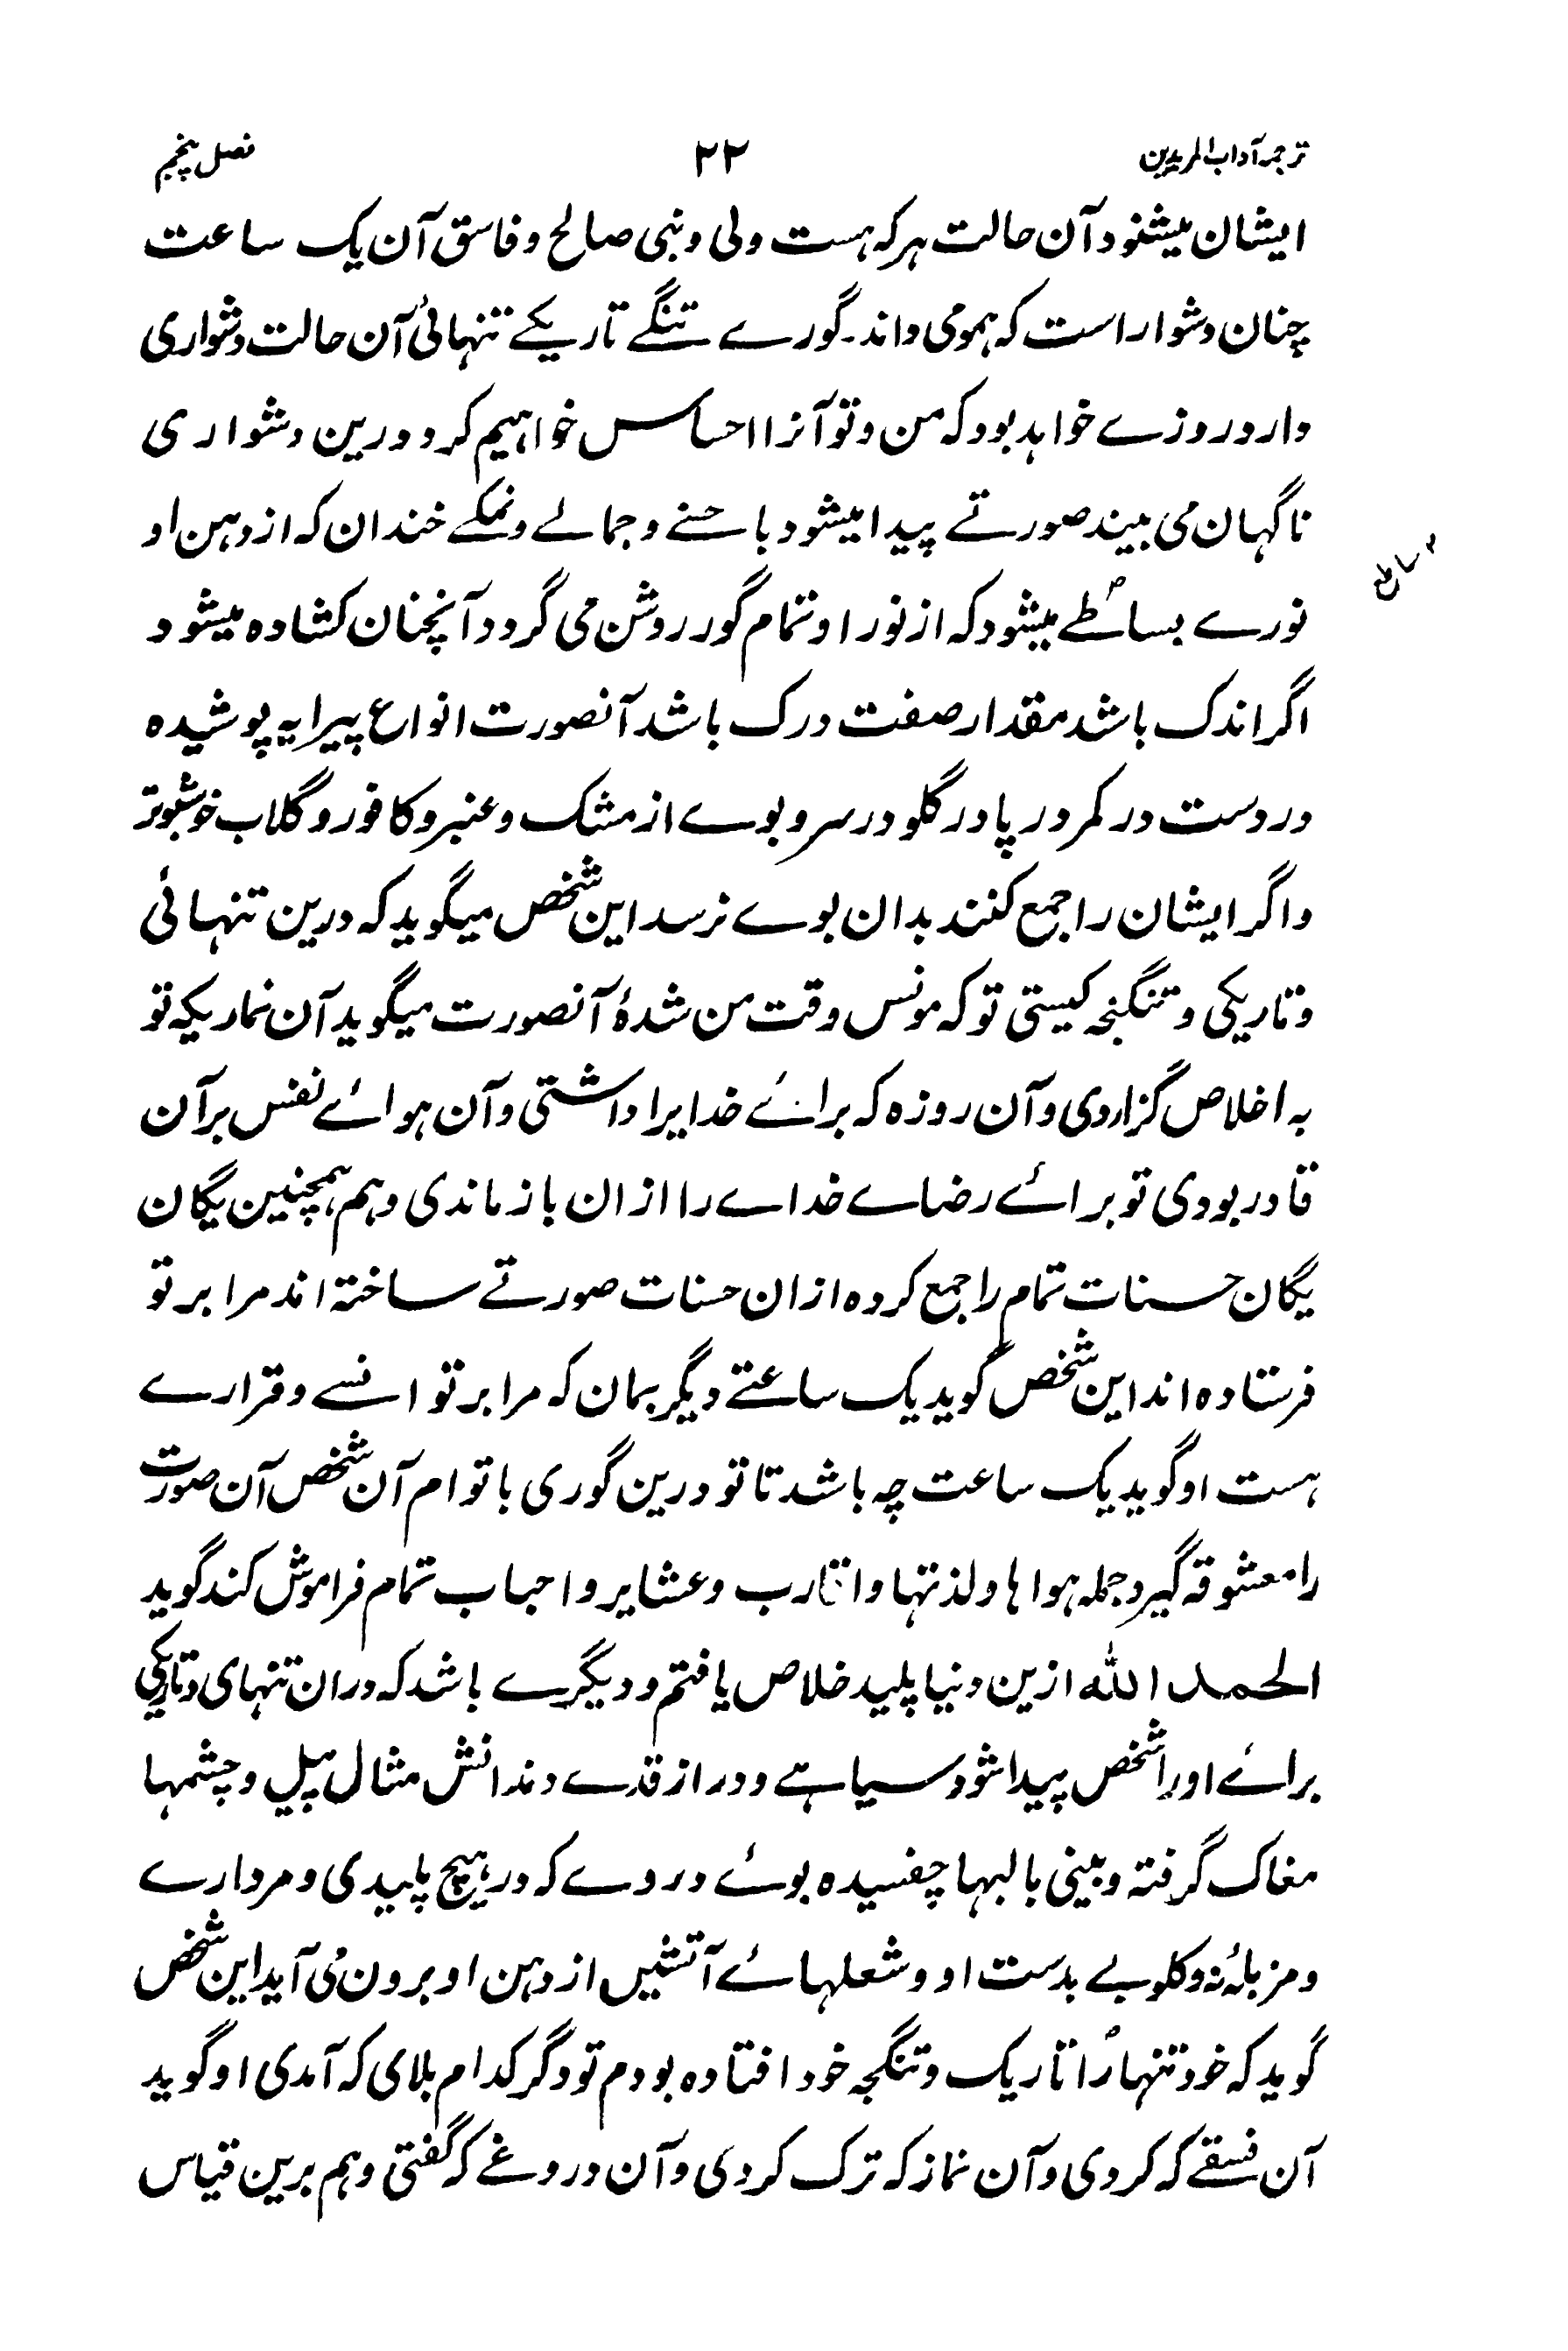 ترجمہ آداب المریدین ۲۲ فصل پنجم
ایشان میشنود آن حالت ہرکہ ہست ولی و نبی صالح و فاسق آن یک ساعت
چنان دشوار است کہ ہمومی داند۔ گورے تنگے تاریکے تنہائی آن حالت دشواری
دارد روزے خواہد بود کہ من و تو آنرا احساس خواہیم کرد و درین دشواری
ناگہان می بیند صورتے پیدا میشود با حسنے و جمالے و نمکے خندان کہ از دہن او
نورے بساطے میشود کہ از نور او تمام گور روشن می گردد آنچنان کشادہ میشود
ساطع
اگر اندک باشد مقدار صفت درک باشد آنصورت انواع پیرایہ پوشیدہ
در دست در کمر در پا در گلو در سر و بوے از مشک و عنبر و کافور و گلاب خوشبوتر
و اگر ایشان را جمع کنند بدان بوے نرسد این شخص میگوید کہ درین تنہائی
و تاریکی و تنگنجہ کیستی تو کہ مونس وقت من شدۂ آنصورت میگوید آن نماریکہ تو
بہ اخلاص گزاردی و آن روزہ کہ برائے خدایرا داشتی و آن ہوائے نفس بر آن
قادر بودی تو برائے رضاے خداے را ازان باز ماندی و ہم ہمچنین یگان
یگان حسنات تمام را جمع کردہ ازان حسنات صورتے ساختہ اند مرا بر تو
فرستادہ اند این شخص گوید یک ساعتے دیگر بمان کہ مرا بر تو انسے و قرارے
ہست او گوید یک ساعت چہ باشد تا تو درین گوری با تو ام آن شخص آن صورت
را معشوقہ گیرد جملہ ہوا ہا و لذتہا و اقارب و عشایر و احباب تمام فراموش کند گوید
الحمد اللہ ازین دنیا پلید خلاص یافتم و دیگرے باشد کہ دران تنہای و تاریکی
برائے اورا شخص پیدا شود سیاہے و دراز قدے دندانش مثال پیل و چشمہا
مغاک گرفتہ و بینی با لبہا چفسیدہ بوئے در وے کہ در ہیچ پلیدی و مردارے
و مزبلۂ نہ و کلوبے بدست او و شعلہائے آتشیں از دہن او برون می آید این شخص
گوید کہ خود تنہا را تاریک و تنگنجہ خود افتادہ بودم تو دگر کدام بلای کہ آمدی او گوید
آن فسقے کہ کردی و آن نماز کہ ترک کردی و آن دروغے کہ گفتی و ہم برین قیاس